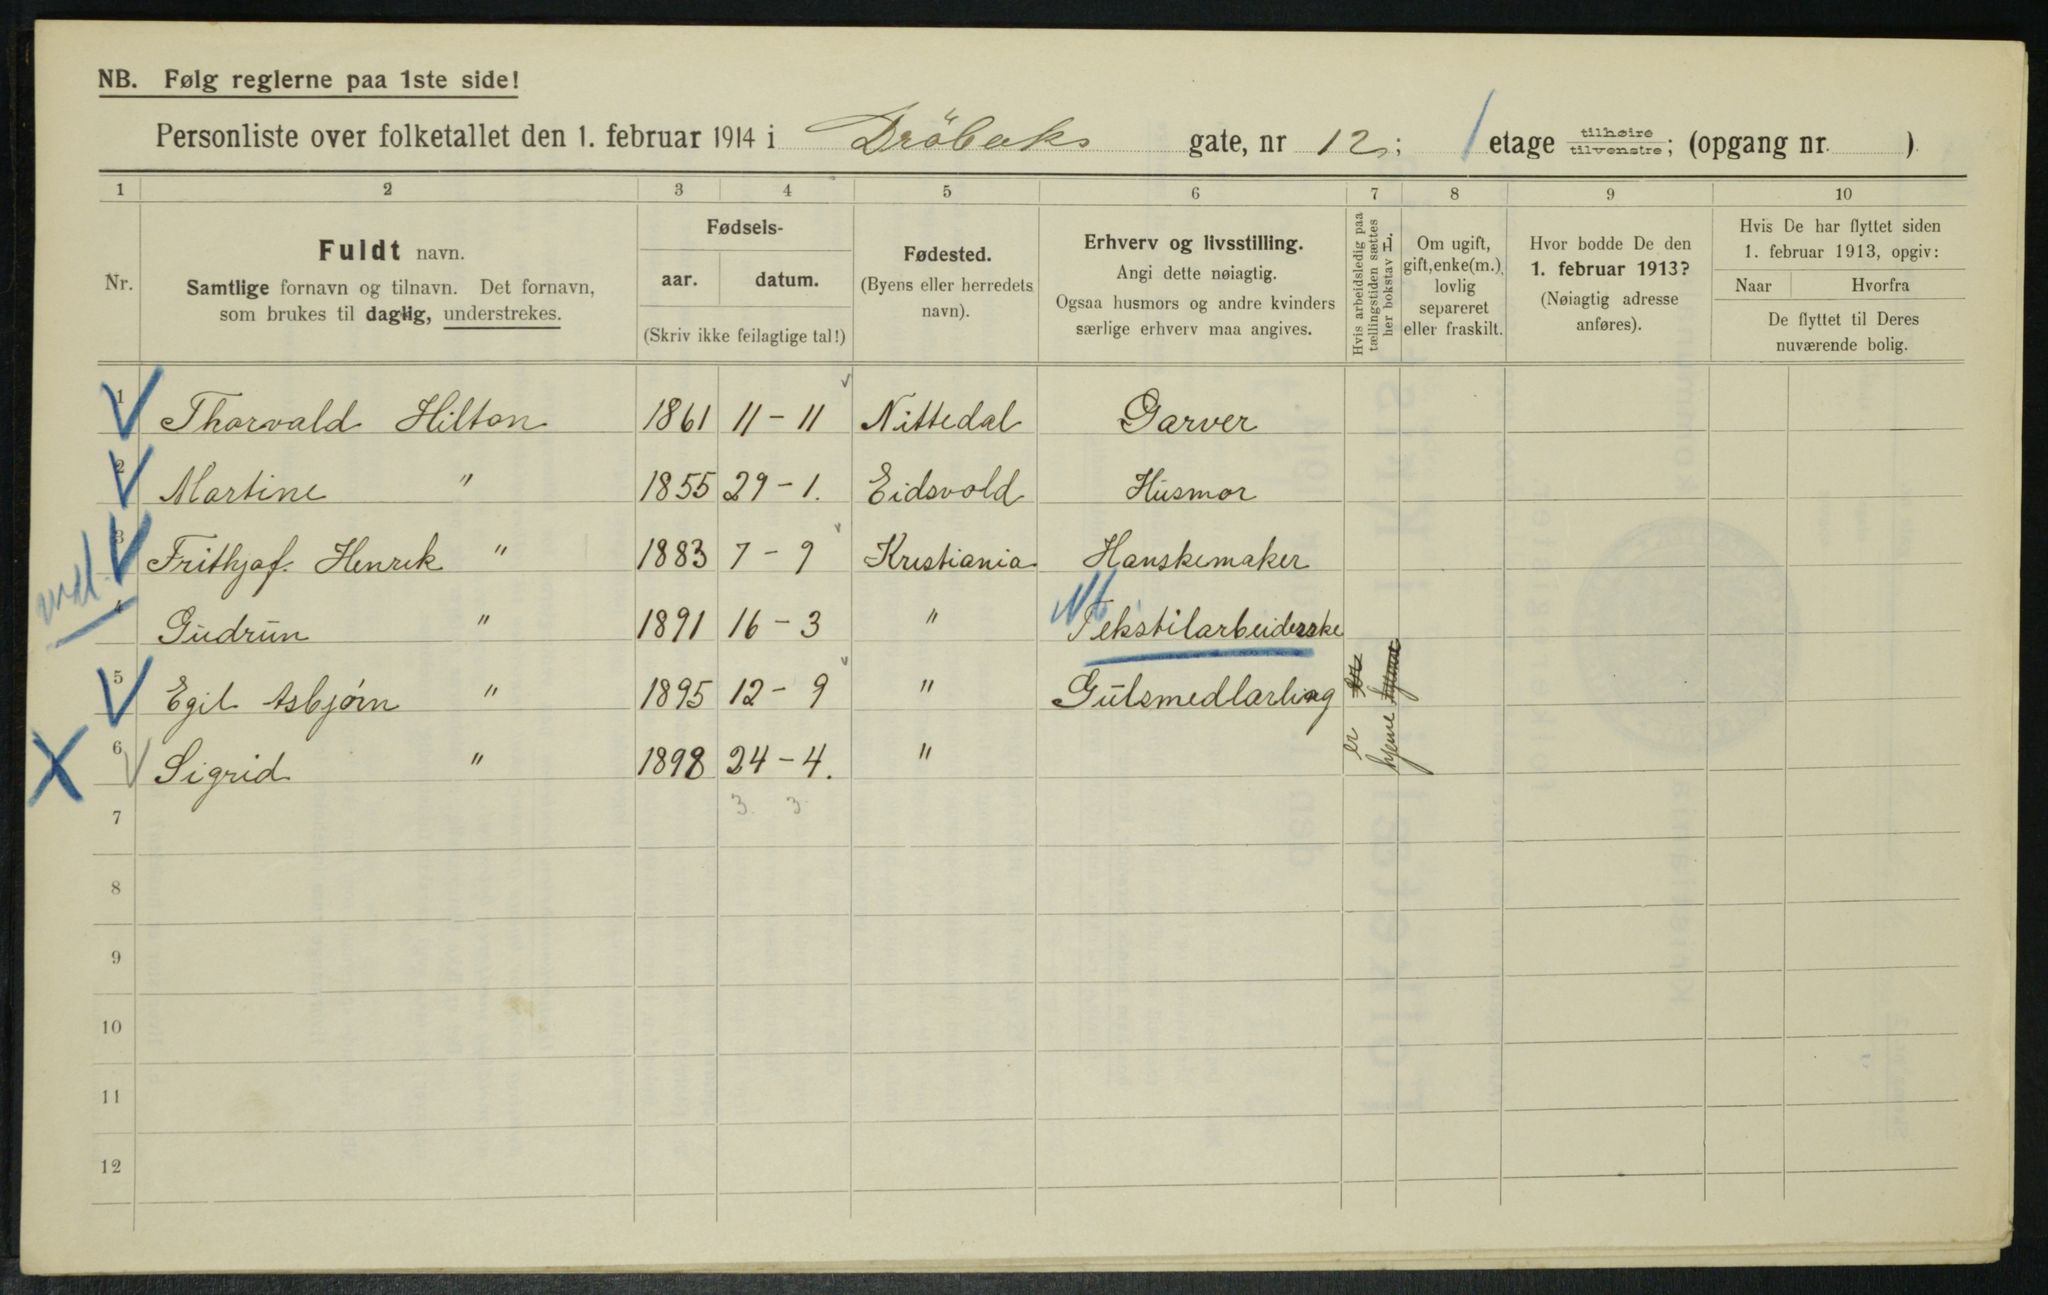 NB. Følg reglerne paa 1ste side!
Personliste over folketallet den 1. februar 1914 i Dröbaks gate, nr 12; 1 etage tilhøire tilvenstre; (opgang nr. )
1 2 3 4 5 6 7 8 9 10
Nr.
Fuldt navn.
Samtlige fornavn og tilnavn. Det fornavn,
som brukes til daglig, understrekes.
Fødsels-
aar. datum.
(Skriv ikke feilagtige tal!)
Fødested.
(Byens eller herredets
navn).
Erhverv og livsstilling.
Angi dette nøiagtig.
Ogsaa husmors og andre kvinders
særlige erhverv maa angives.
Hvis arbeidsledig paa
tællingstiden sættes
her bokstav L.
Om ugift,
gift, enke(m.),
lovlig
separeret
eller fraskilt.
Hvor bodde De den
1. februar 1913?
(Nøiagtig adresse
anføres).
Hvis De har flyttet siden
1. februar 1913, opgiv:
Naar Hvorfra
De flyttet til Deres
nuværende bolig.
1 Thorvald Hilton 1861 11 - 11 Nittedal Garver
2 Martine " 1855 29 - 1. Eidsvold Husmor
3 Frithjof. Henrik " 1883 7 - 9 Kristiania Hanskemaker
4 Gudrun " 1891 16 - 3 " Tekstilarbeiderske
5 Egil Asbjörn " 1895 12 - 9 " Gulsmedlærling
6 Sigrid " 1898 24 - 4. "
er
hjeme
3. 3
7
8
9
10
11
12